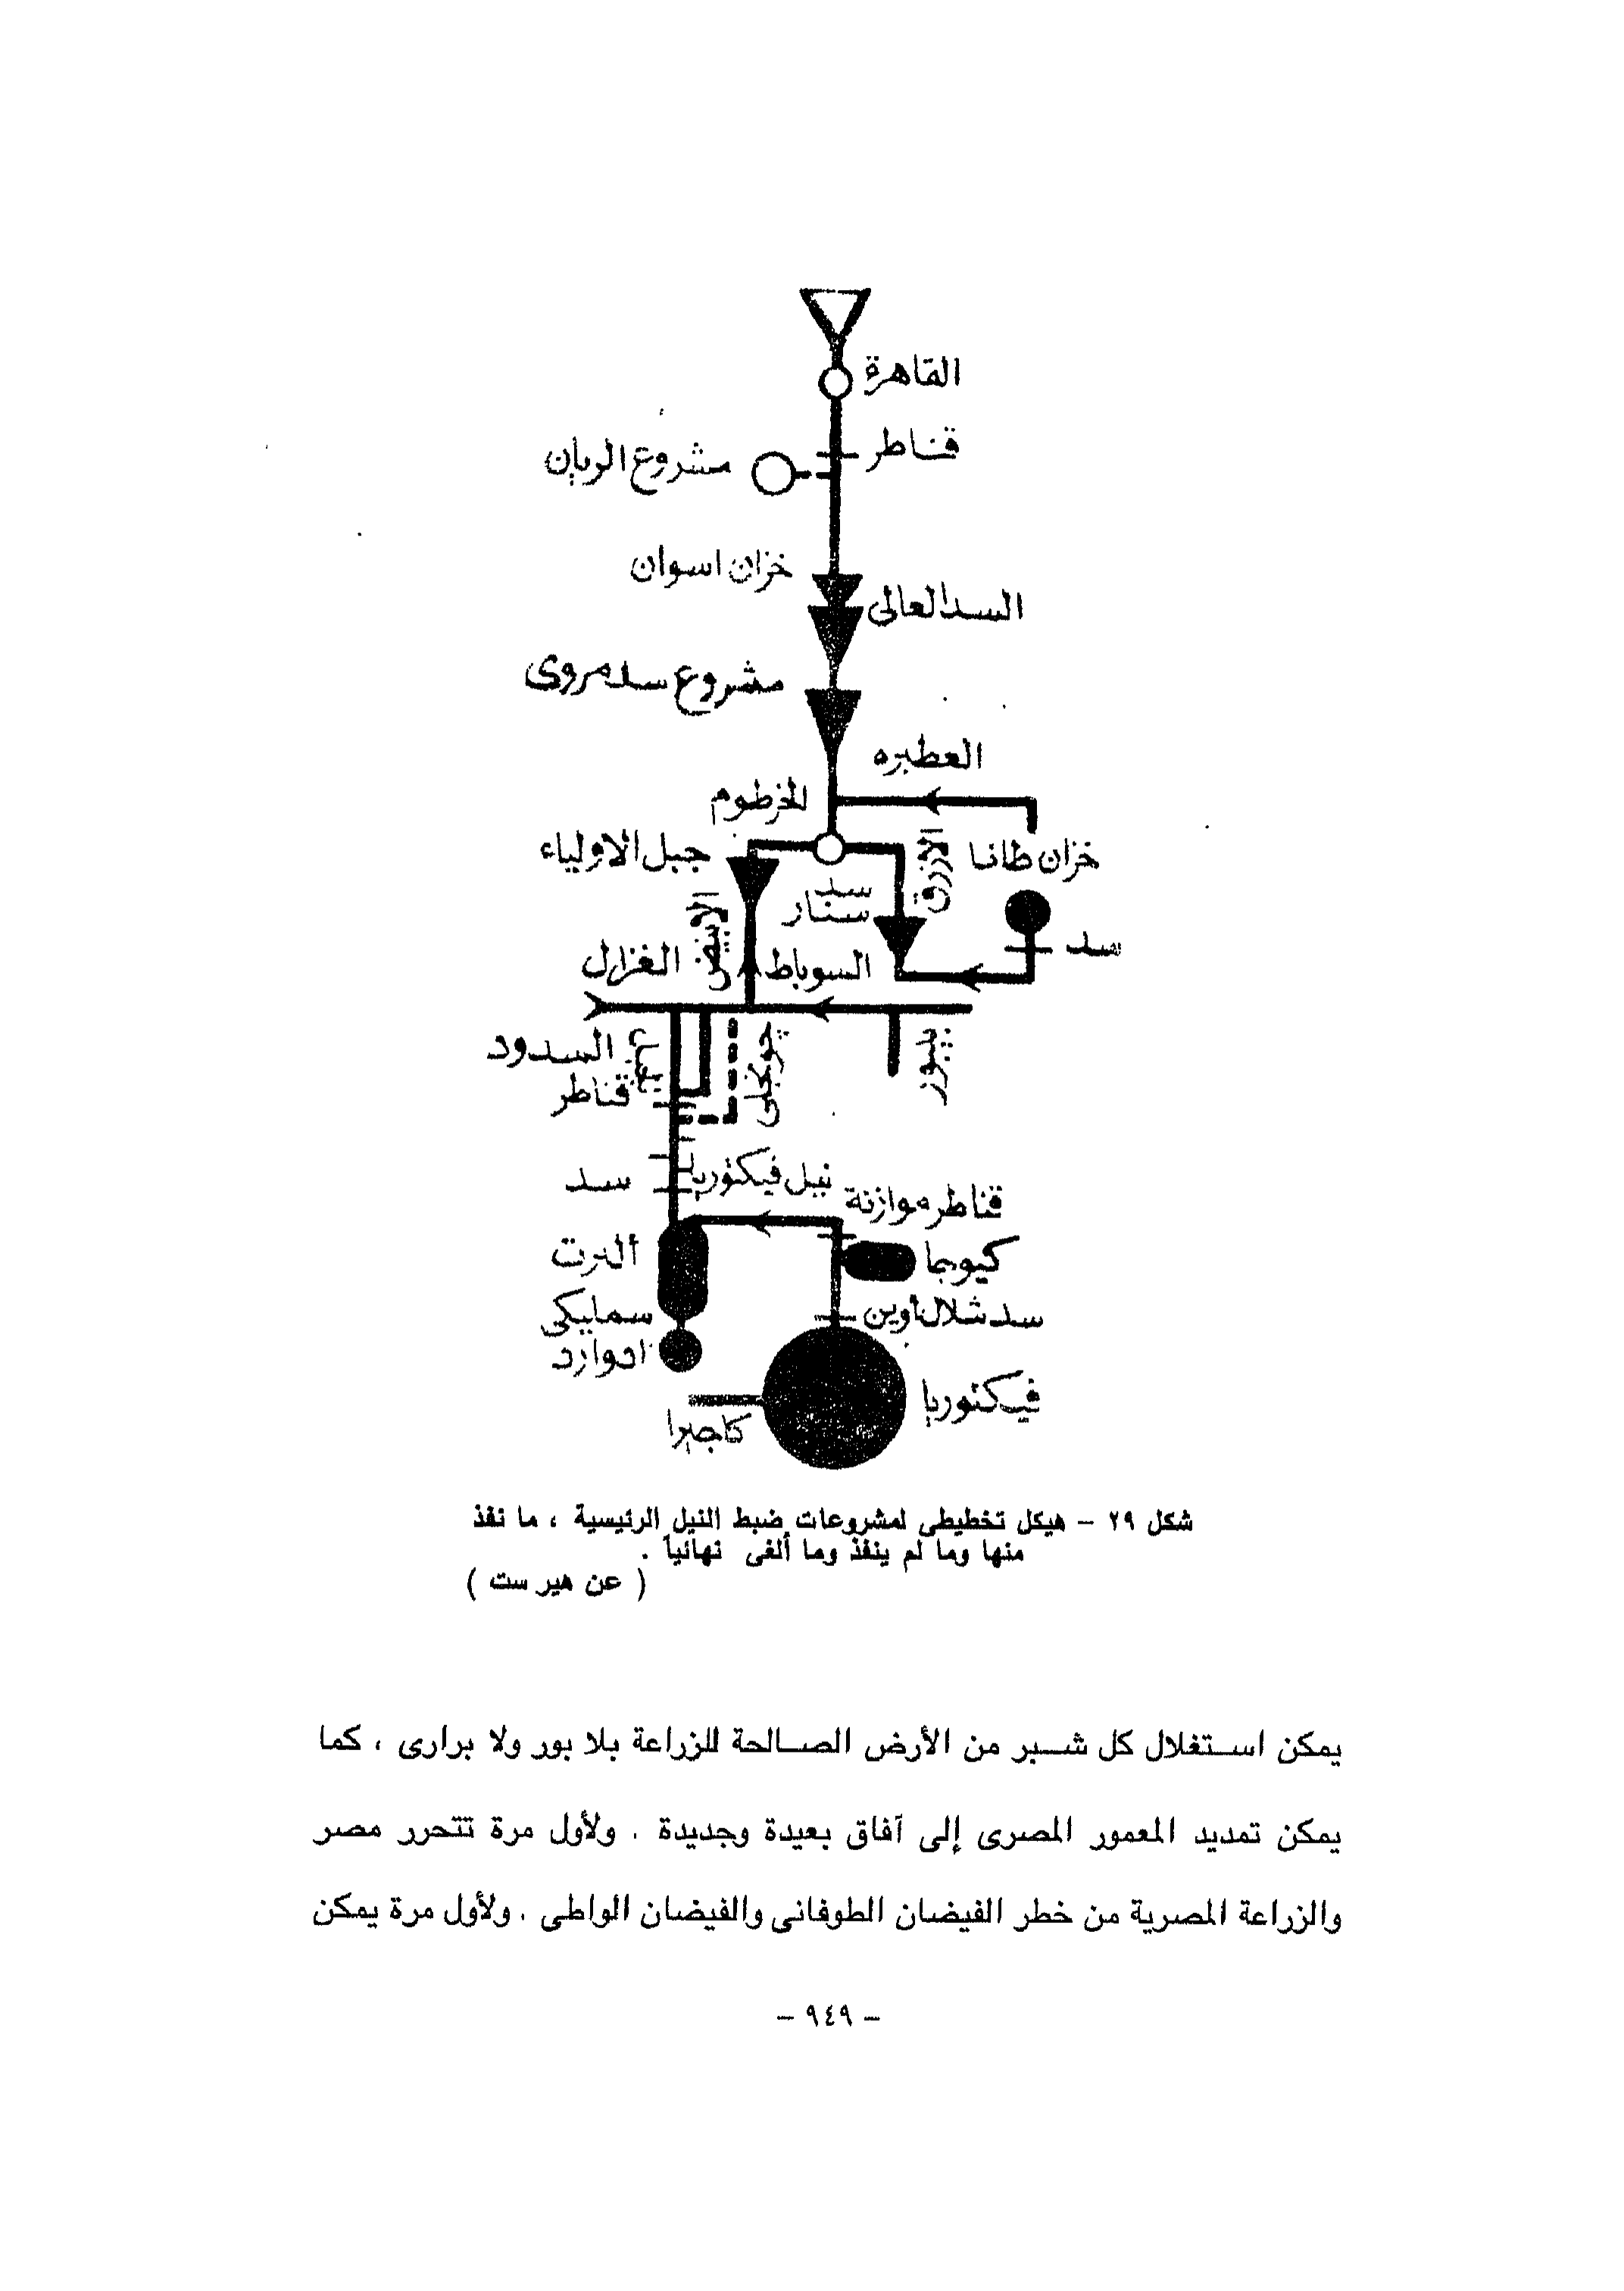 القاهرة
قناطر
مشروع الريان
خزان اسوان
السد العالى
مشروع سد مروى
العطبره
الخرطوم
جبل الاولياء
الازرق
خزان طانا
سد
سنار
الابيض
سد
الغزال
السوباط
السدود
چونجلى
بيبور
قناطر
نيل فيكتوريا
سد
قناطر موازنة
ألبرت
كيوجا
سمليكى
سد شلال أوين
ادوارد
فيكتوريا
كاجيرا
شكل ٢٩ – هيكل تخطيطى لمشروعات ضبط النيل الرئيسية ، ما نفذ
منها وما لم ينفذ وما ألغى نهائياً .
( عن هيرست )
يمكن استغلال كل شبر من الأرض الصالحة للزراعة بلا بور ولا برارى ، كما
يمكن تمديد المعمور المصرى إلى آفاق بعيدة وجديدة . ولأول مرة تتحرر مصر
والزراعة المصرية من خطر الفيضان الطوفانى والفيضان الواطى . ولأول مرة يمكن
– ٩٤٩ –